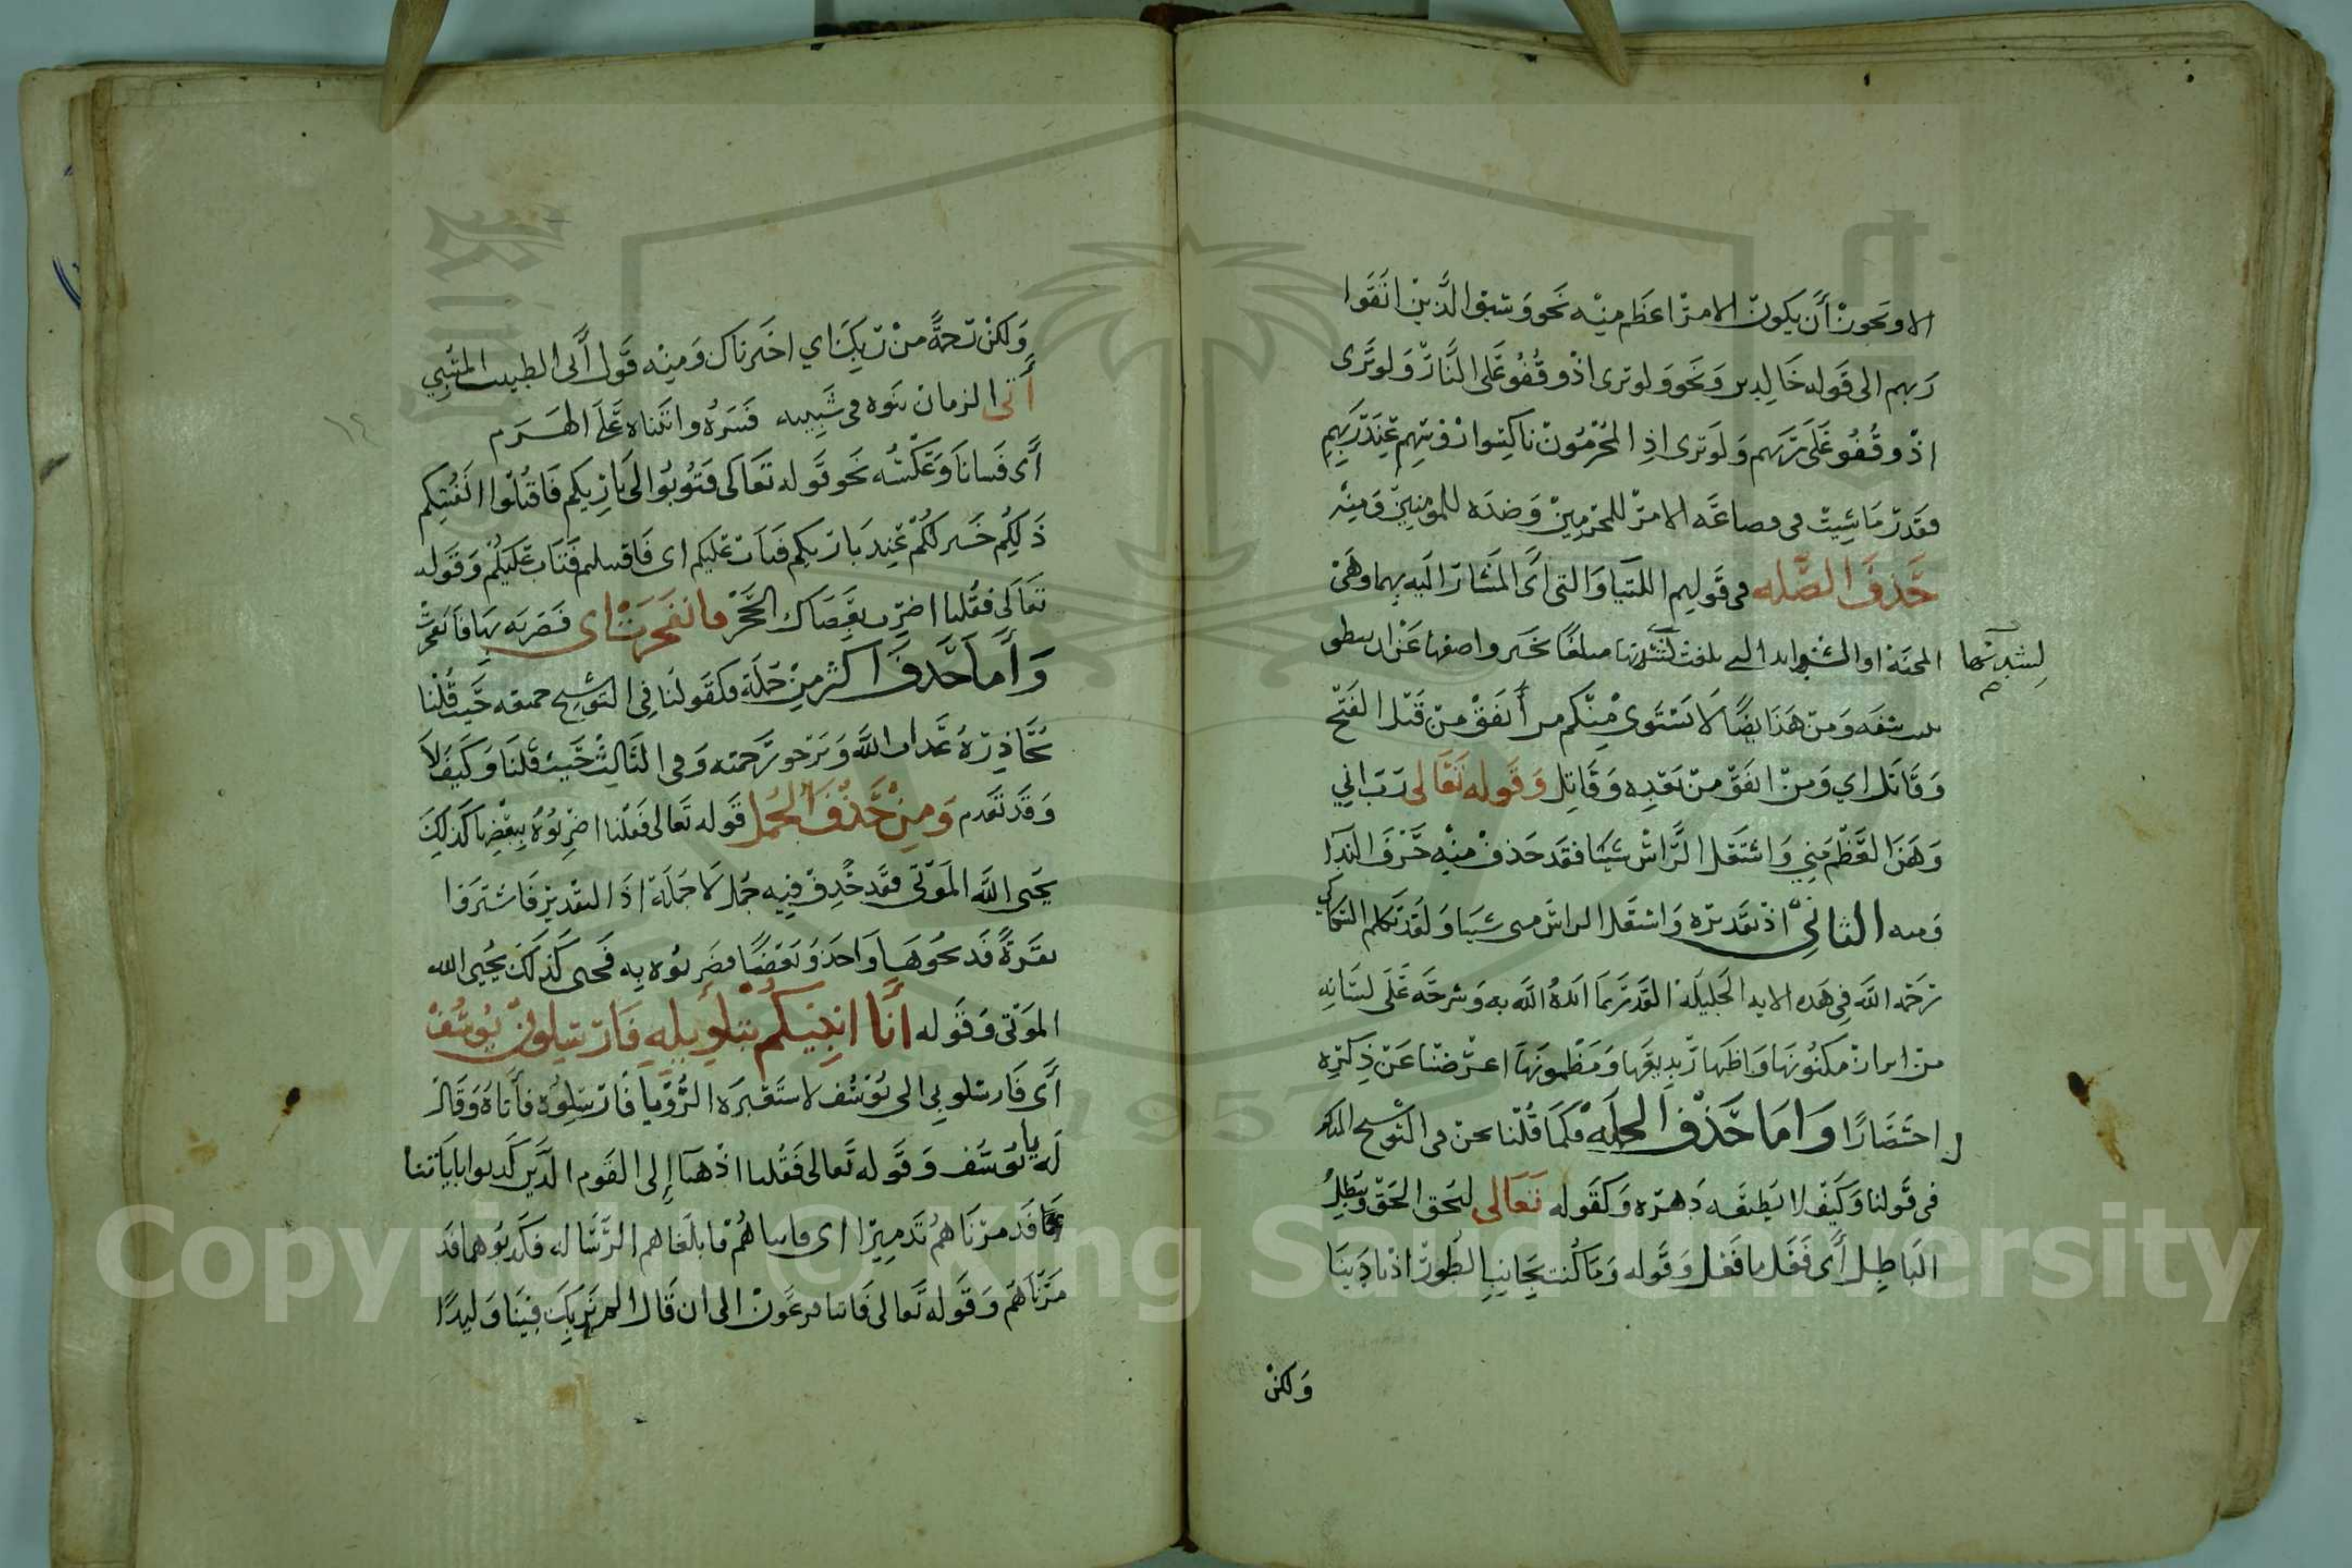 الا ويجوز أن يكون الامر اعظم منه نحو وسيق الذين اتقوا
ربهم الى قوله خالدين ونحو ولو ترى اذ وقفوا على النار ولو ترى
اذ وقفوا على ربهم ولو ترى اذ المجرمون ناكسوا رؤسهم عند ربهم
فقدر ما شيت في فصاعه الامر للمجرمين وضده للمومنين ومنه
حذف الصله في قولهم اللتيا والتي أي المشار اليه بهما وهي
المحنة او الشدايد التي بلغت لشدتها مبلغا يخبر واصفها عن ان ينطق
لشدتها
ببنت شفه ومن هذا ايضا لا يستوى منكم من أنفق من قبل الفتح
وقاتل اي ومن انفق من بعده وقاتل وقوله تعالى رب اني
وهن العظم مني واشتعل الراس شيبا فقد حذف منه حرف الندا
ومنه الثاني اذ تقديره واشتعل الراس منى شيبا ولقد تكلم السكاكي
رحمه الله في هذه الايه الجليلة القدر بما ايده الله به وشرحه على لسانه
من ابراز مكنونها واظهار بديعها ومضمونها اعرضنا عن ذكره
اختصارا واما حذف الجملة فكما قلنا نحن في التوشيح المذكور
في قولنا وكيف لا يطيقه دهره وكقوله تعالى ليحق الحق ويبطل
الباطل أي فعل ما فعل وقوله وما كنت بجانب الطور اذ نادينا
ولكن
ولكن رحمة من ربك اي اخترناك ومنه قول أبي الطيب المتنبي
أتى الزمان بنوه في شبيبته فسره واتيناه على الهرم
أي فسانا وعكسه نحو قوله تعالى فتوبوا الى باريكم فاقتلوا انفسكم
ذلكم خير لكم عند باريكم فتاب عليكم اى فاقتلتم فتاب عليكم وقوله
تعالى فقلنا اضرب بعصاك الحجر فانفجرت اى فضربه بها فانفجرت
وأما حذف اكثر من جملة فكقولنا في التوشيح حيث قلنا
يحاذره عذاب الله ويرجو رحمته وفي الثالث حيث قلنا وكيف لا
وقد تقدم ومن حذف الجمل قوله تعالى فقلنا اضربوه ببعضها كذلك
يحيى الله الموتى فقد حذف فيه جمل لا جملة اذ التقدير فاشتروا
بقرة فذبحوها واخذوا بعضا فضربوه به فحيى كذلك يحيى الله
الموتى وقوله أنا انبئكم بتاويله فارسلون يوسف
أي فارسلوني الى يوسف لاستعبره الرؤيا فارسلوه فأتاه وقال
له يا يوسف وقوله تعالى فقلنا اذهبا إلى القوم الذين كذبوا باياتنا
فدمرناهم تدميرا اى فاتياهم فابلغاهم الرساله فكذبوهما فد
مرناهم وقوله تعالى فاتيا فرعون الى ان قال الم نربك فينا وليدا
Copyright © King Saud University
1957